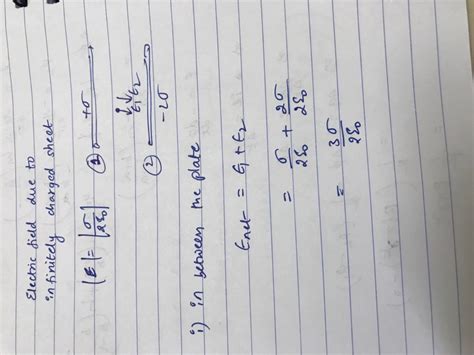 Electric field due to
infinitely charged sheet
|E| = |σ/2ε₀|
① +σ
↓↓
E₁ E₂
② -2σ
i) in between the plate
Enet = E₁ + E₂
= σ/2ε₀ + 2σ/2ε₀
= 3σ/2ε₀